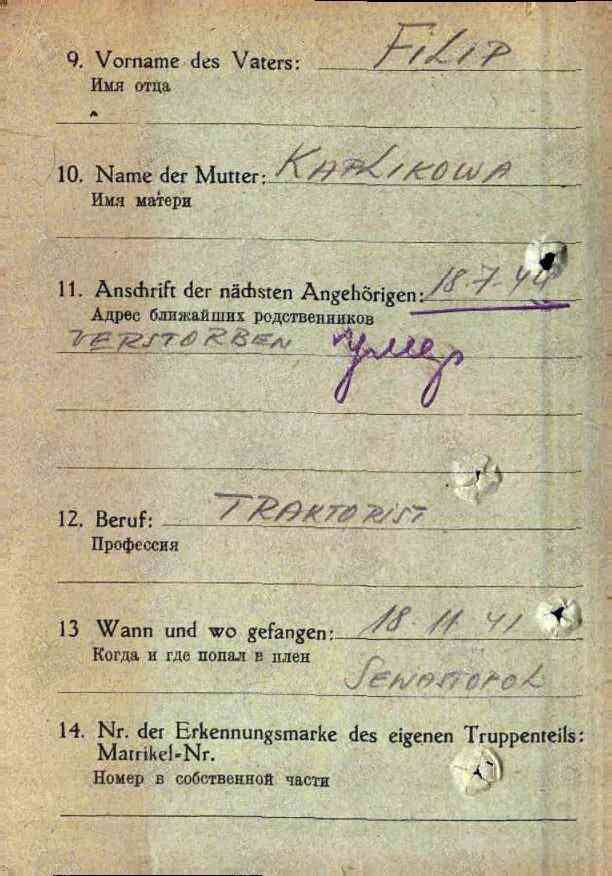 9. Vorname des Vaters: FILIP
Имя отца
10. Name der Mutter: KAPLIKOWA
Имя матери
11. Anschrift der nächsten Angehörigen: 18.7.44
Адрес ближайших родственников
VERSTORBEN умер
12. Beruf: TRAKTORIST
Профессия
13 Wann und wo gefangen: 18. 11. 41
Когда и где попал в плен
SEWASTOPOL
14. Nr. der Erkennungsmarke des eigenen Truppenteils:
Matrikel-Nr.
Номер в собственной части